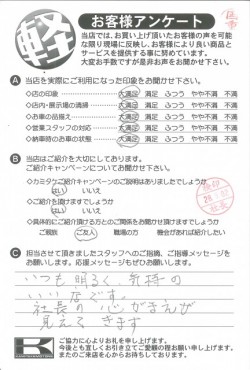 軽
お客様アンケート
当店では、お買い上げ頂いたお客様の声を可能
な限り現場に反映し、お客様により良い商品と
サービスを提供する事に努めています。
大変お手数ですが是非お声をお聞かせ下さい。
A 当店を実際にご利用になった印象をお聞かせ下さい。
◇店の印象 大満足 満足 ふつう やや不満 不満
◇店内・展示場の清掃 大満足 満足 ふつう やや不満 不満
◇お車の品揃え 大満足 満足 ふつう やや不満 不満
◇営業スタッフの対応 大満足 満足 ふつう やや不満 不満
◇納車時のお車の状態 大満足 満足 ふつう やや不満 不満
B 当店はご紹介を大切にしております。
ご紹介キャンペーンについてお聞かせ下さい。
◇カミタケご紹介キャンペーンのご説明はありましたでしょうか
はい いいえ
◇ご紹介を頂けますでしょうか
はい いいえ
◇具体的にご紹介頂ける方とのご関係をお聞かせ頂けますでしょうか
ご親族 ご友人 職場の方 機会があれば紹介したい
C 担当させて頂きましたスタッフへのご指摘、ご指導メッセージを
お願いします。応援メッセージもぜひお願いします。
いつも明るく、気持の
いい店です。
社長の心がまえが
見えてきます
K
ご協力に心よりお礼を申し上げます。
今後とも宜しくお引き立てご愛顧の程お願い申し上げます。
またのご来店を心からお待ちしております。